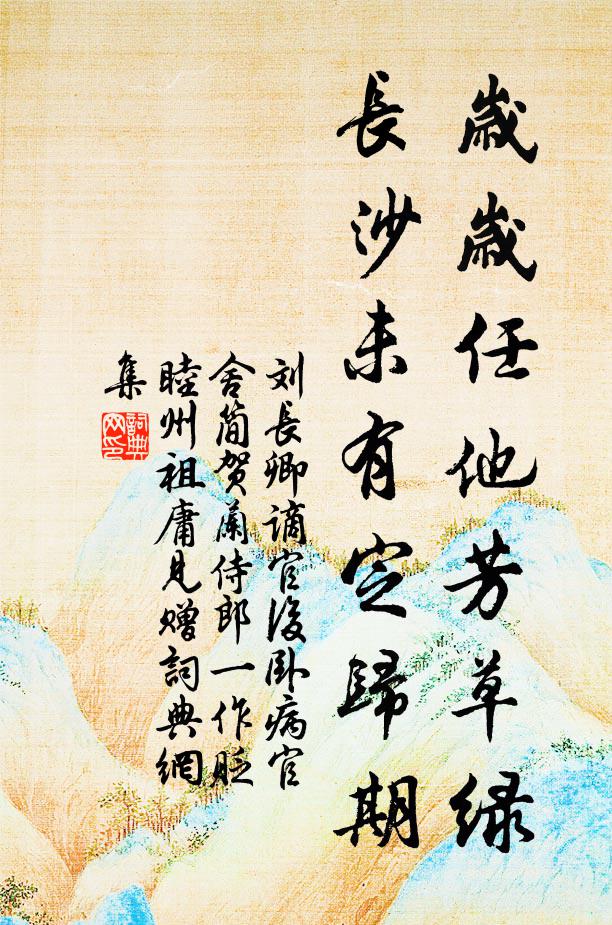 歲歲任他芳草緑
長沙未有定歸期
刘長卿謫官後卧病官
舍简贺蘭侍郎一作貶
睦州祖庸見贈詞典網
集
詞典
网印